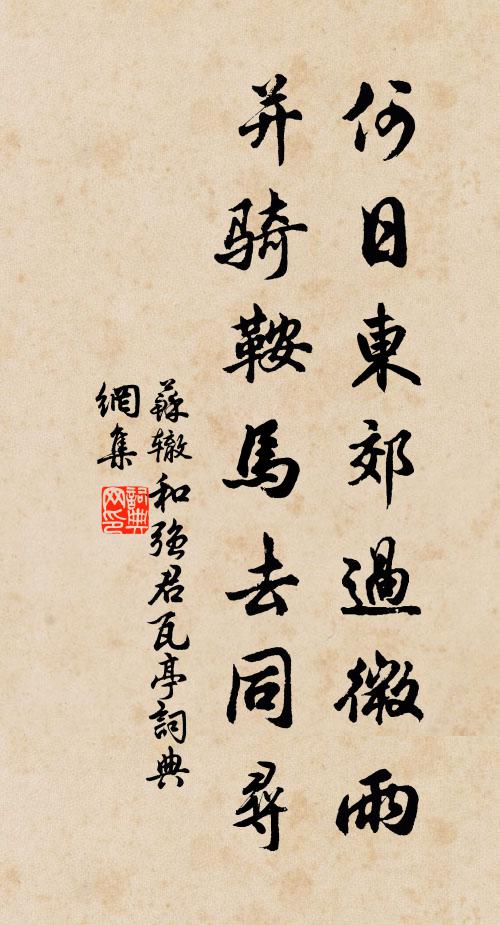 何日東郊過微雨
并騎鞍馬去同尋
蘇辙和强君瓦亭詞典
網集
詞典网印